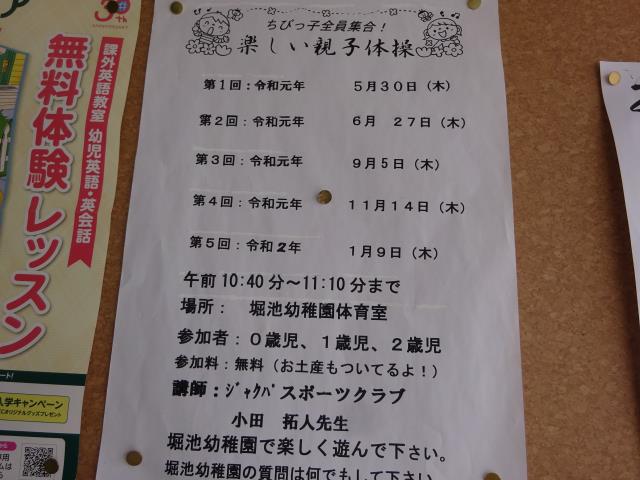 ちびっ子全員集合！
楽しい親子体操
第１回：令和元年　５月３０日（木）
第２回：令和元年　６月　２７日（木）
第３回：令和元年　９月５日（木）
第４回：令和元年　１１月１４日（木）
第５回：令和２年　１月９日（木）
午前 10:40 分～11:10 分まで
場所：　堀池幼稚園体育室
参加者：０歳児、１歳児、２歳児
参加料：無料（お土産もついてるよ！）
講師：ｼﾞｬｸﾊﾟスポーツクラブ
小田　拓人先生
堀池幼稚園で楽しく遊んで下さい。
堀池幼稚園の質問は何でもして下さい
課外英語教室 幼児英語・英会話
無料体験レッスン
入学キャンペーン